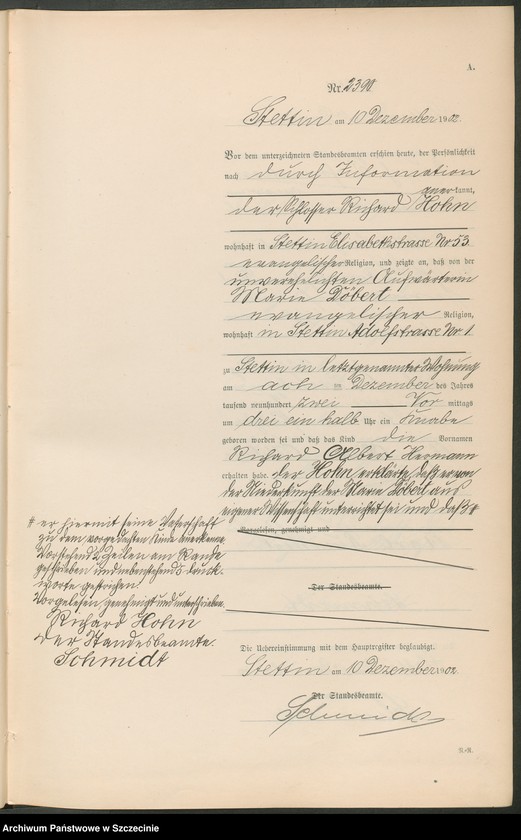 A.
Nr. 2390
Stettin am 10 Dezember 1902.
Vor dem unterzeichneten Standesbeamten erschien heute, der Persönlichkeit
nach durch Information
anerkannt,
der Schlosser Richard Hohn
wohnhaft in Stettin Elisabethstrasse Nr 53
evangelischer Religion, und zeigte an, daß von der
unverehelichten Aufwärterin
Marie Döbert
evangelischer Religion,
wohnhaft in Stettin Adolfstrasse Nr. 1
zu Stettin in letztgenannter Wohnung
am acht ten Dezember des Jahres
tausend neunhundert zwei Vor mittags
um drei ein halb Uhr ein Knabe
geboren worden sei und daß das Kind die Vornamen
Richard Albert Hermann
erhalten habe. Der Hohn erklärte, daß er von
der Niederkunft der Marie Döbert aus
eigener Wissenschaft unterrichtet sei und daß #
# er hiermit seine Vaterschaft
zu dem vorgedachten Kinde anerkenne.
Vorstehend 2 Zeilen am Rande
geschrieben und nebenstehend 5 Druck-
worte gestrichen.
Vorgelesen, genehmigt und unterschrieben
Richard Hohn
Der Standesbeamte.
Schmidt
Vorgelesen, genehmigt und
Der Standesbeamte.
Die Uebereinstimmung mit dem Hauptregister beglaubigt.
Stettin am 10 Dezember 1902.
Der Standesbeamte.
Schmidt
Archiwum Państwowe w Szczecinie